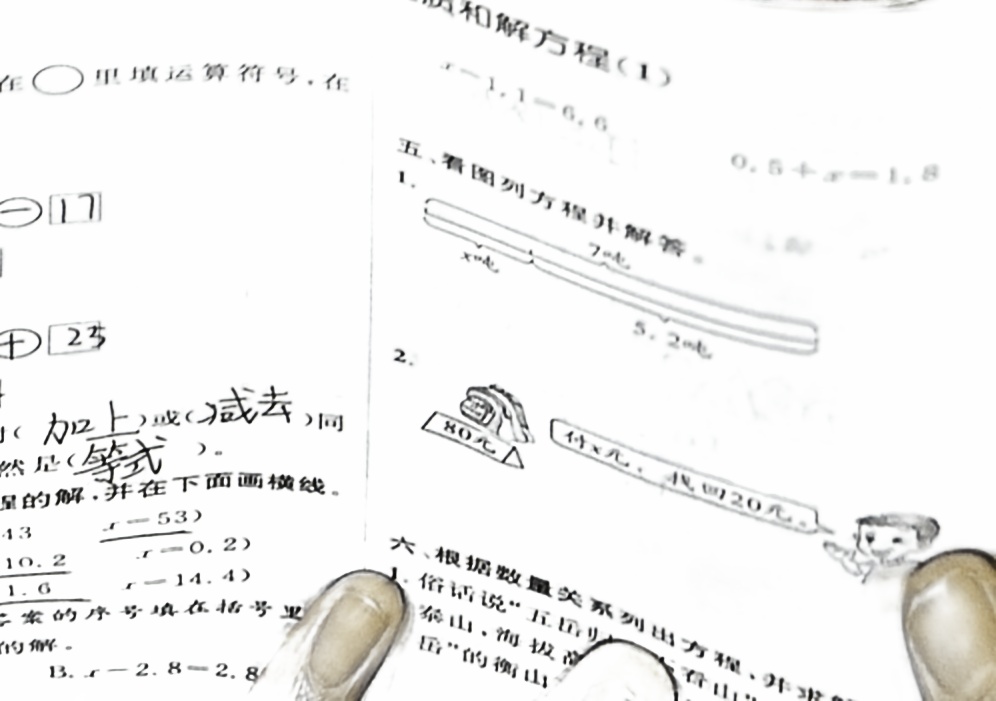 在 里填运算符号,在
- 17
+ 23
( 加上 )或( 减去 )同
然是( 等式 )。
的解,并在下面画横线。
43 x=53)
10.2 x=0.2)
1.6 x=14.4)
案的序号填在括号里
的解。
B. x-2.8=2.8
和解方程(1)
x-1.1=6.6
0.5+x=1.8
五、看图列方程并解答。
1.
7吨
x吨
5.2吨
2.
80元
付x元,找回20元。
六、根据数量关系列出方程,并求解
1. 俗话说“五岳归 看山”
泰山,海拔高
岳”的衡山